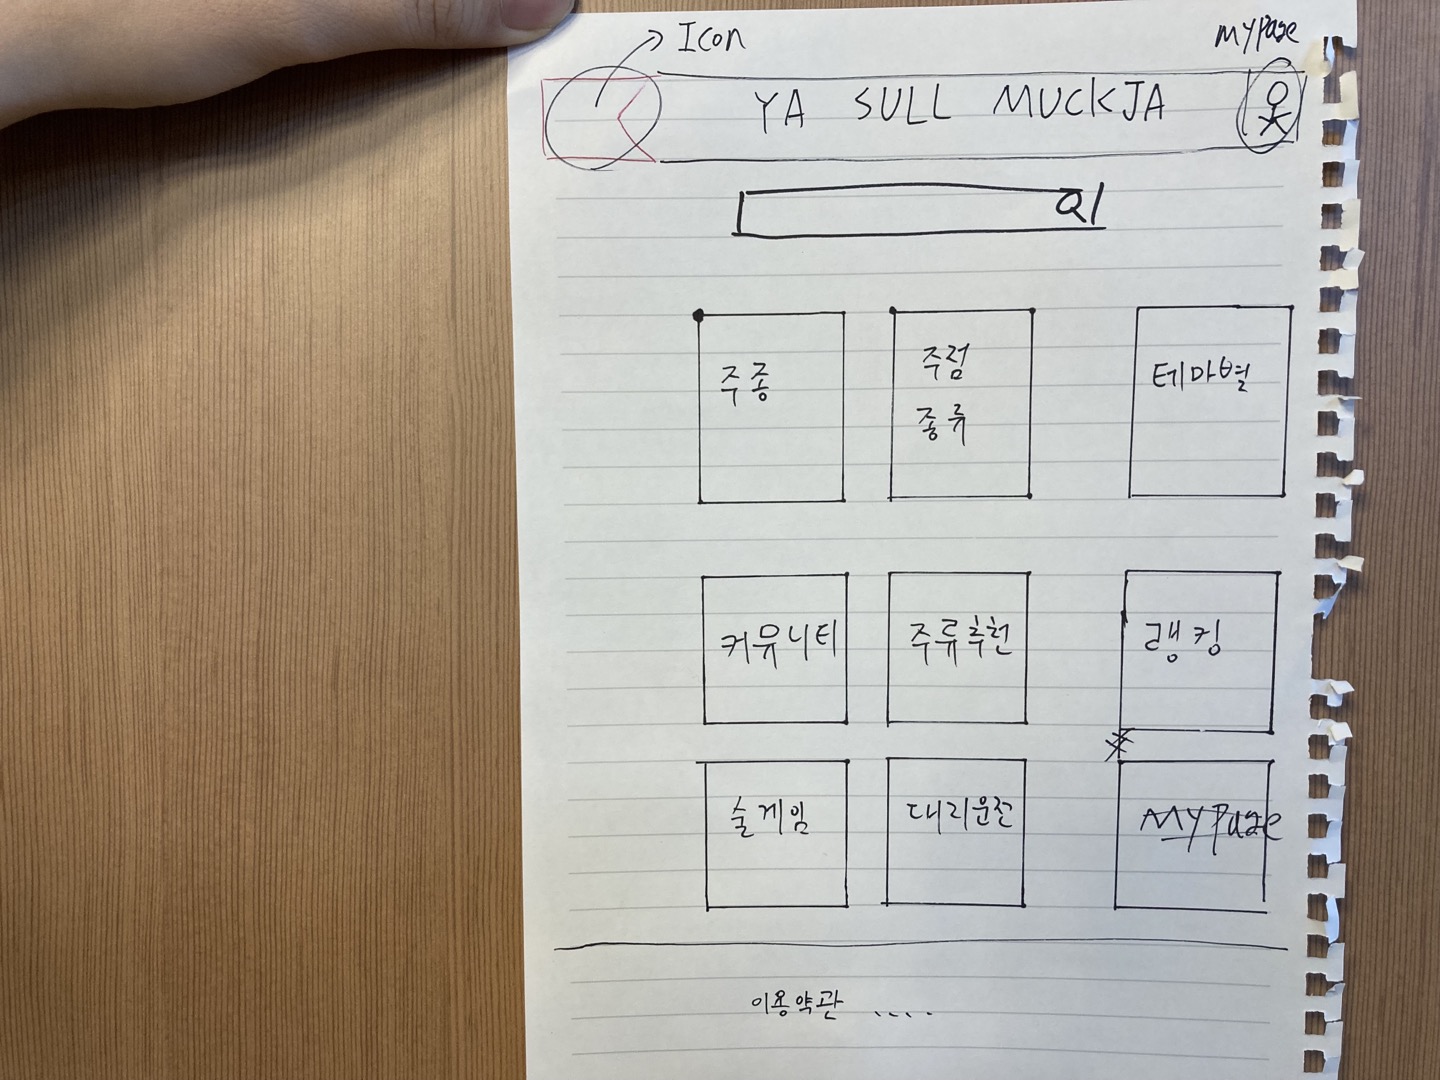 Icon
MyPage
YA SULL MUCKJA
주종
주점
종류
테마별
커뮤니티
주류추천
랭킹
술게임
대리운전
MyPage
이용약관 ....